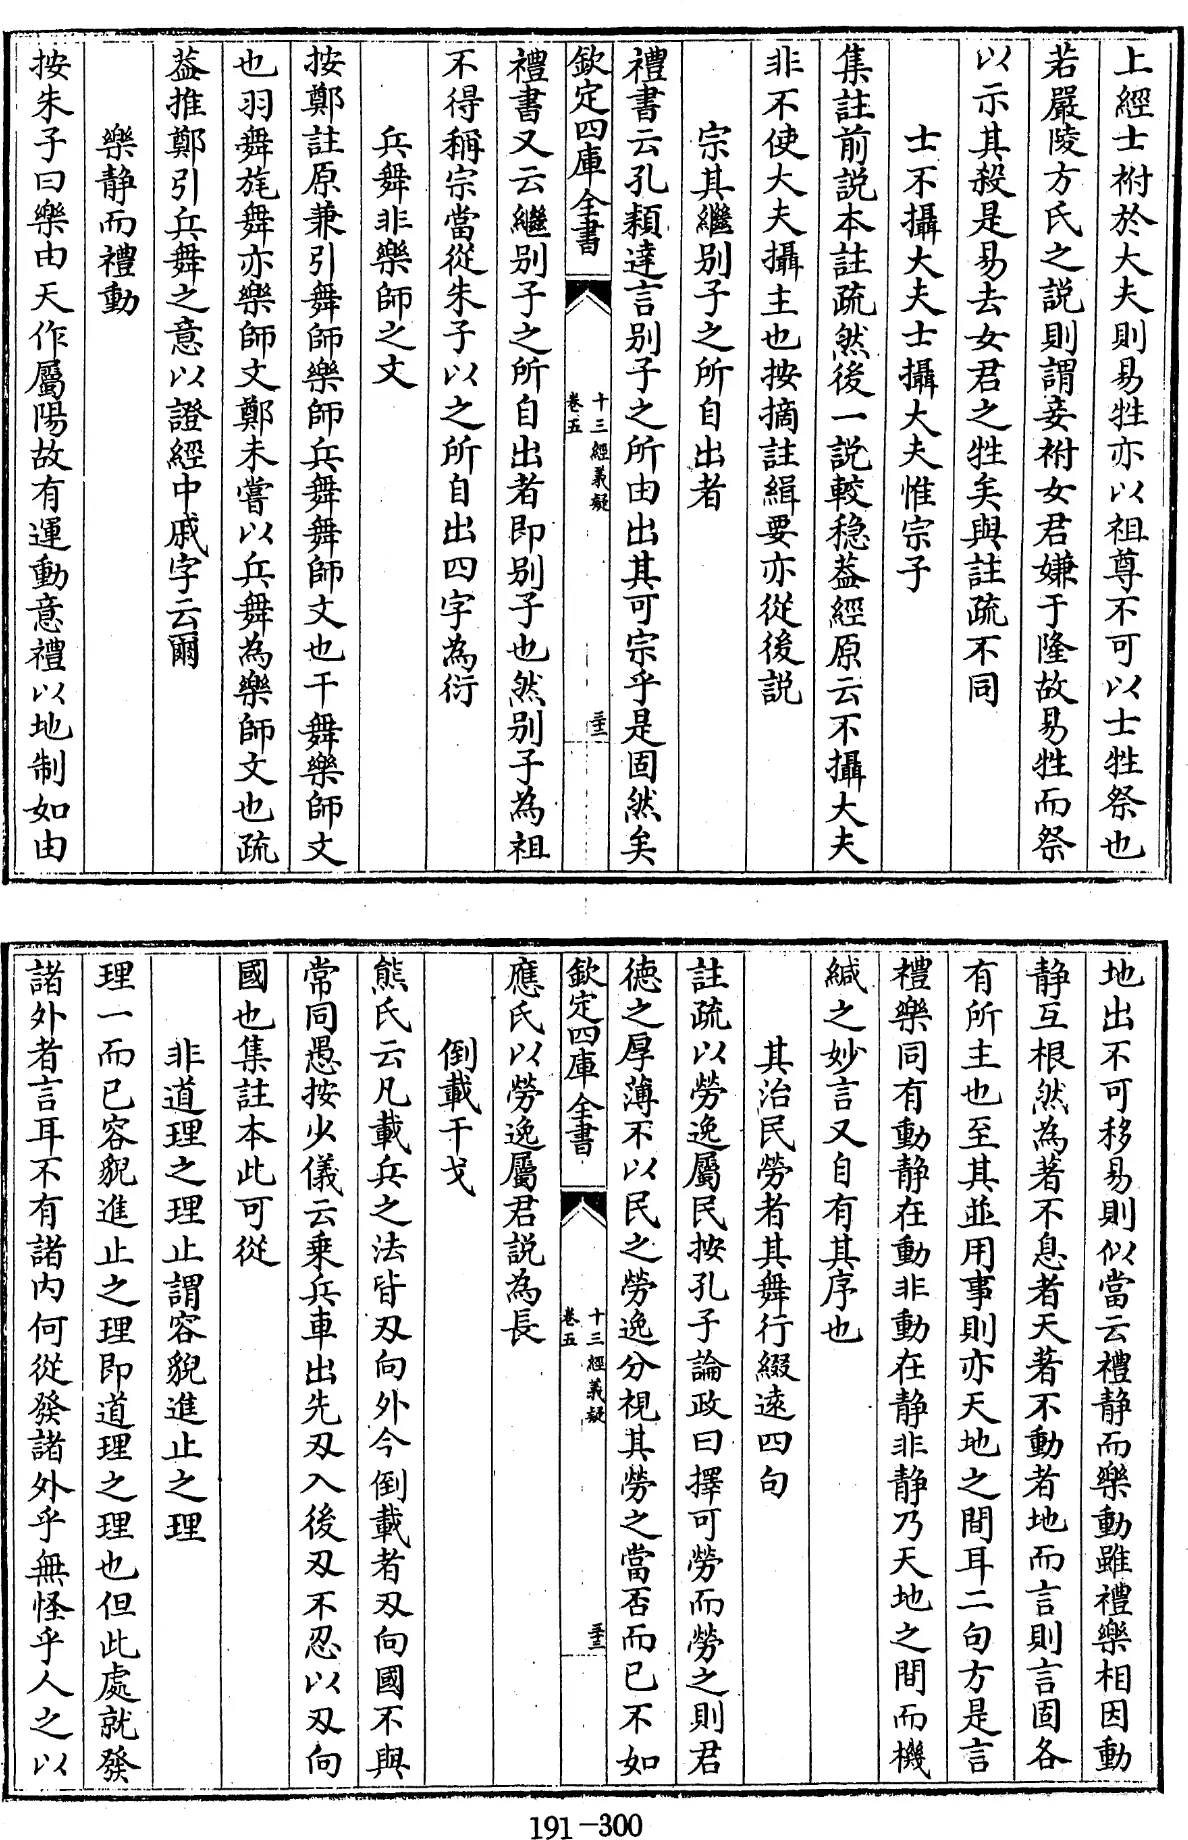 上經士祔於大夫則易牲亦以祖尊不可以士牲祭也
若嚴陵方氏之説則謂妾祔女君嫌于隆故易牲而祭
以示其殺是易去女君之牲矣與註疏不同
士不攝大夫士攝大夫惟宗子
集註前説本註疏然後一説較稳葢經原云不攝大夫
非不使大夫攝主也按摘註緝要亦從後説
宗其繼别子之所自出者
禮書云孔頴達言别子之所由出其可宗乎是固然矣
欽定四庫全書
十三經義疑
卷五
禮書又云繼别子之所自出者即别子也然别子為祖
不得稱宗當從朱子以之所自出四字為衍
兵舞非樂師之文
按鄭註原兼引舞師樂師兵舞舞師文也干舞樂師文
也羽舞旄舞亦樂師文鄭未嘗以兵舞為樂師文也疏
葢推鄭引兵舞之意以證經中戚字云爾
樂静而禮動
按朱子曰樂由天作屬陽故有運動意禮以地制如由
地出不可移易則似當云禮静而樂動雖禮樂相因動
静互根然為著不息者天著不動者地而言則言固各
有所主也至其並用事則亦天地之間耳二句方是言
禮樂同有動静在動非動在静非静乃天地之間而機
緘之妙言又自有其序也
其治民勞者其舞行綴遠四句
註疏以勞逸屬民按孔子論政曰擇可勞而勞之則君
徳之厚薄不以民之勞逸分視其勞之當否而已不如
欽定四庫全書
十三經義疑
卷五
應氏以勞逸屬君説為長
倒載干戈
熊氏云凡載兵之法皆刄向外今倒載者刄向國不與
常同愚按少儀云乘兵車出先刄入後刄不忍以刄向
國也集註本此可從
非道理之理止謂容貌進止之理
理一而已容貌進止之理即道理之理也但此處就發
諸外者言耳不有諸内何從發諸外乎無怪乎人之以
191-300